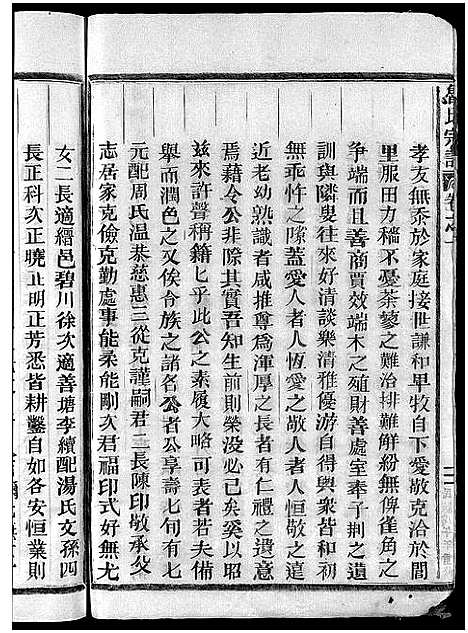 孝友無忝於家庭接世謙和卑牧自下愛敬克洽於閭
里服田力穡不憂荼蓼之難治排難解紛無俾雀角之
争端而且善商賈效端木之殖財善處室奉子荆之遺
訓與隣叟往來好清談樂清雅優游自得與衆皆和初
無乖忤之嗛蓋愛人者人恆愛之敬人者人恒敬之遠
近老幼熟識者咸推尊爲渾厚之長者有公禮之遺意
焉藉令公非除其實吾知生前則榮没必已矣奚以昭
兹來許聲稱籍乚乎此公之素履大略可表者若夫備
舉而潤色之又俟合族之諸名公者公享壽七旬有七
元配周氏温恭慈惠三從克謹嗣君二長陳印敬承父
志居家克儉克勤處事能柔能剛次君福印式好無尤
女二長適縉邑碧川徐次適善塘李續配湯氏文孫四
長正科次正曉止明正芳悉皆耕鑿自如各安恒業則
氏宗譜
卷之一